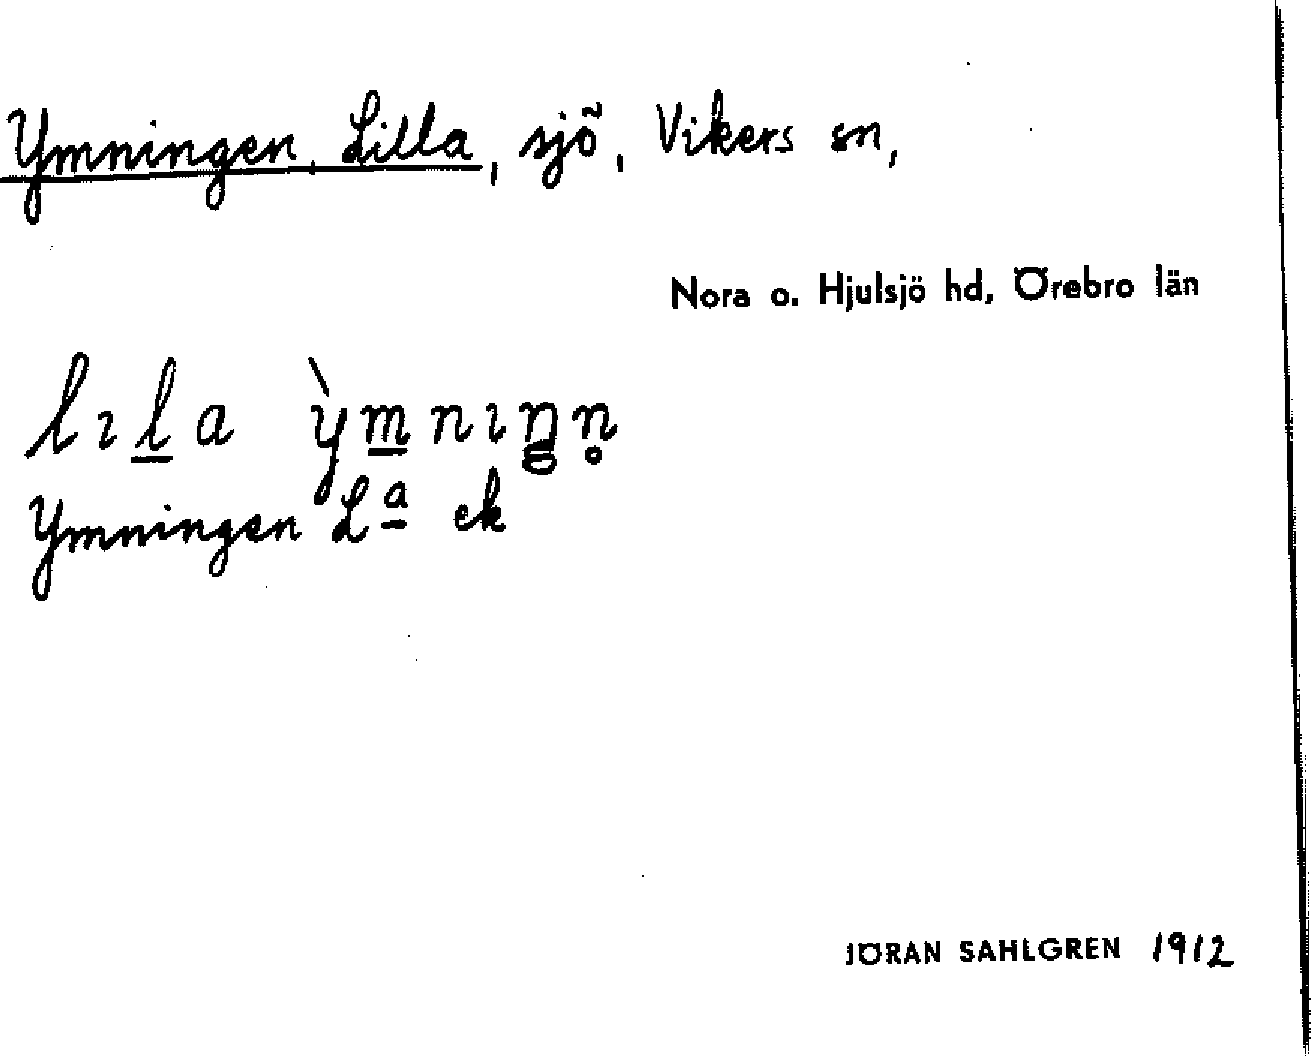 Ymningen, Lilla, sjö, Vikers sn,
Nora o. Hjulsjö hd, Örebro län
lıl̲a ỳm̲nıŋ̲n̥
Ymningen Lª ek
JÖRAN SAHLGREN 1912